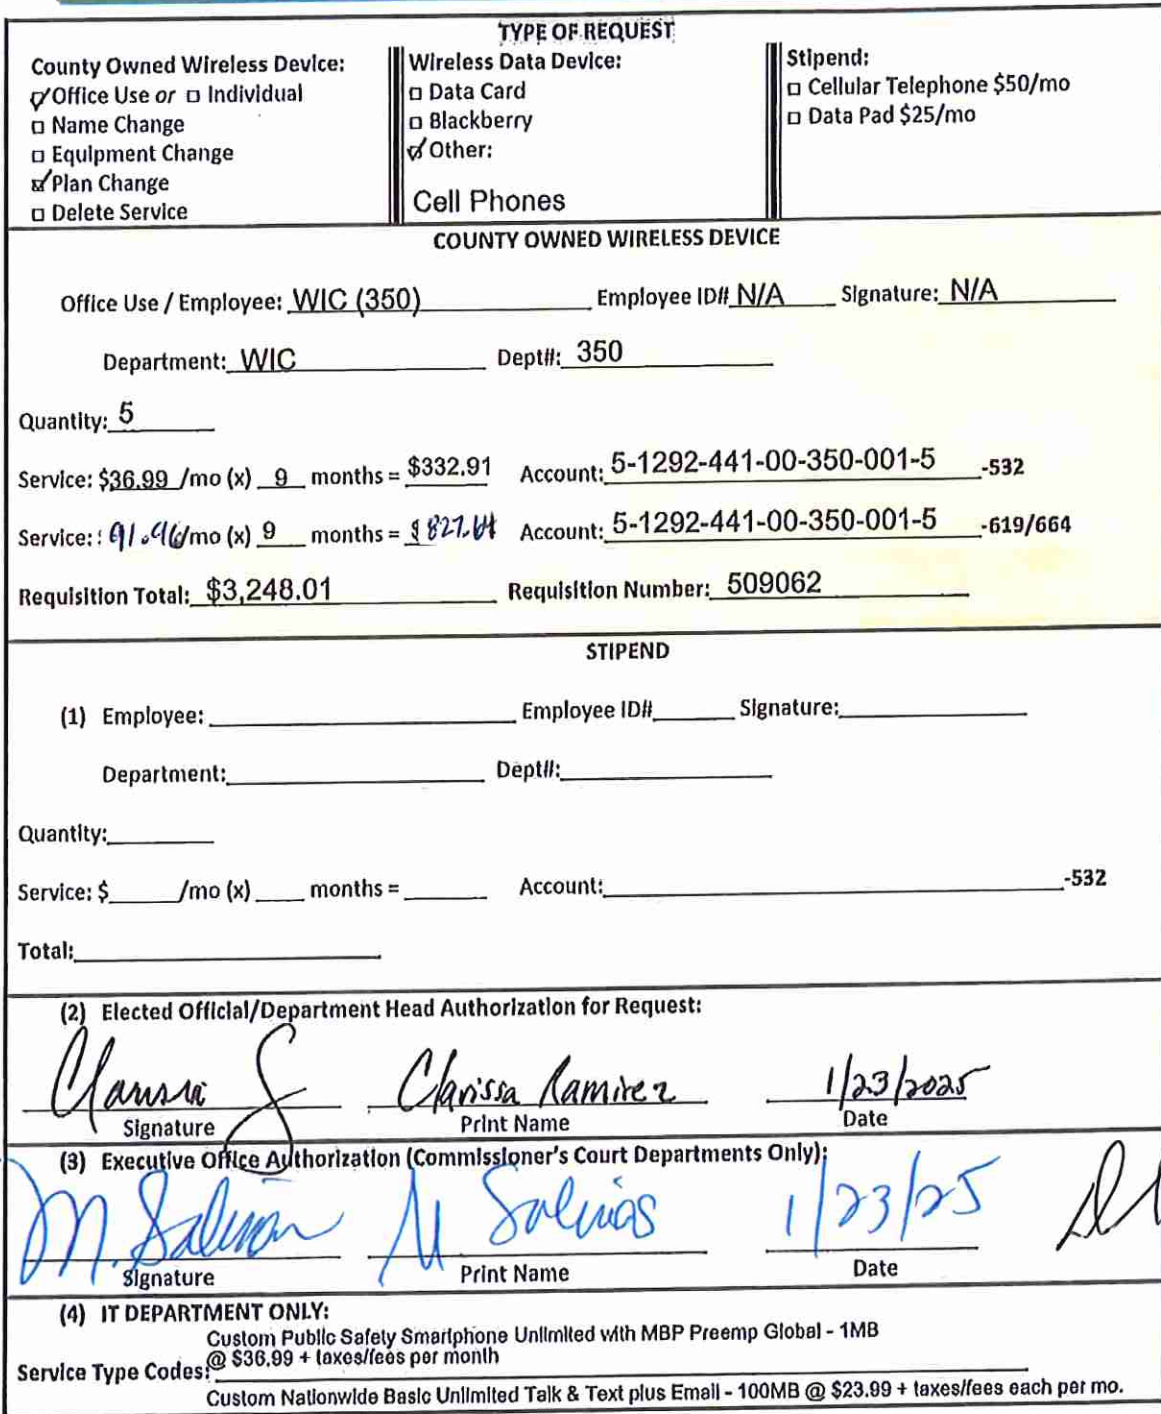 TYPE OF REQUEST
County Owned Wireless Device:
Office Use or □ Individual
□ Name Change
□ Equipment Change
Plan Change
□ Delete Service
Wireless Data Device:
□ Data Card
□ Blackberry
Other:
Cell Phones
Stipend:
□ Cellular Telephone $50/mo
□ Data Pad $25/mo
COUNTY OWNED WIRELESS DEVICE
Office Use / Employee: WIC (350) Employee ID# N/A Signature: N/A
Department: WIC Dept#: 350
Quantity: 5
Service: $36.99 /mo (x) 9 months = $332.91 Account: 5-1292-441-00-350-001-5 -532
Service: 91.96/mo (x) 9 months = $827.64 Account: 5-1292-441-00-350-001-5 -619/664
Requisition Total: $3,248.01 Requisition Number: 509062
STIPEND
(1) Employee: Employee ID# Signature:
Department: Dept#:
Quantity:
Service: $ /mo (x) months = Account: -532
Total:
(2) Elected Official/Department Head Authorization for Request:
Clarissa Ramirez 1/23/2025
Signature Print Name Date
(3) Executive Office Authorization (Commissioner's Court Departments Only):
M. Salinas M Salinas 1/23/25
Signature Print Name Date
(4) IT DEPARTMENT ONLY:
Custom Public Safety Smartphone Unlimited with MBP Preemp Global - 1MB
Service Type Codes: @ $36.99 + taxes/fees per month
Custom Nationwide Basic Unlimited Talk & Text plus Email - 100MB @ $23.99 + taxes/fees each per mo.